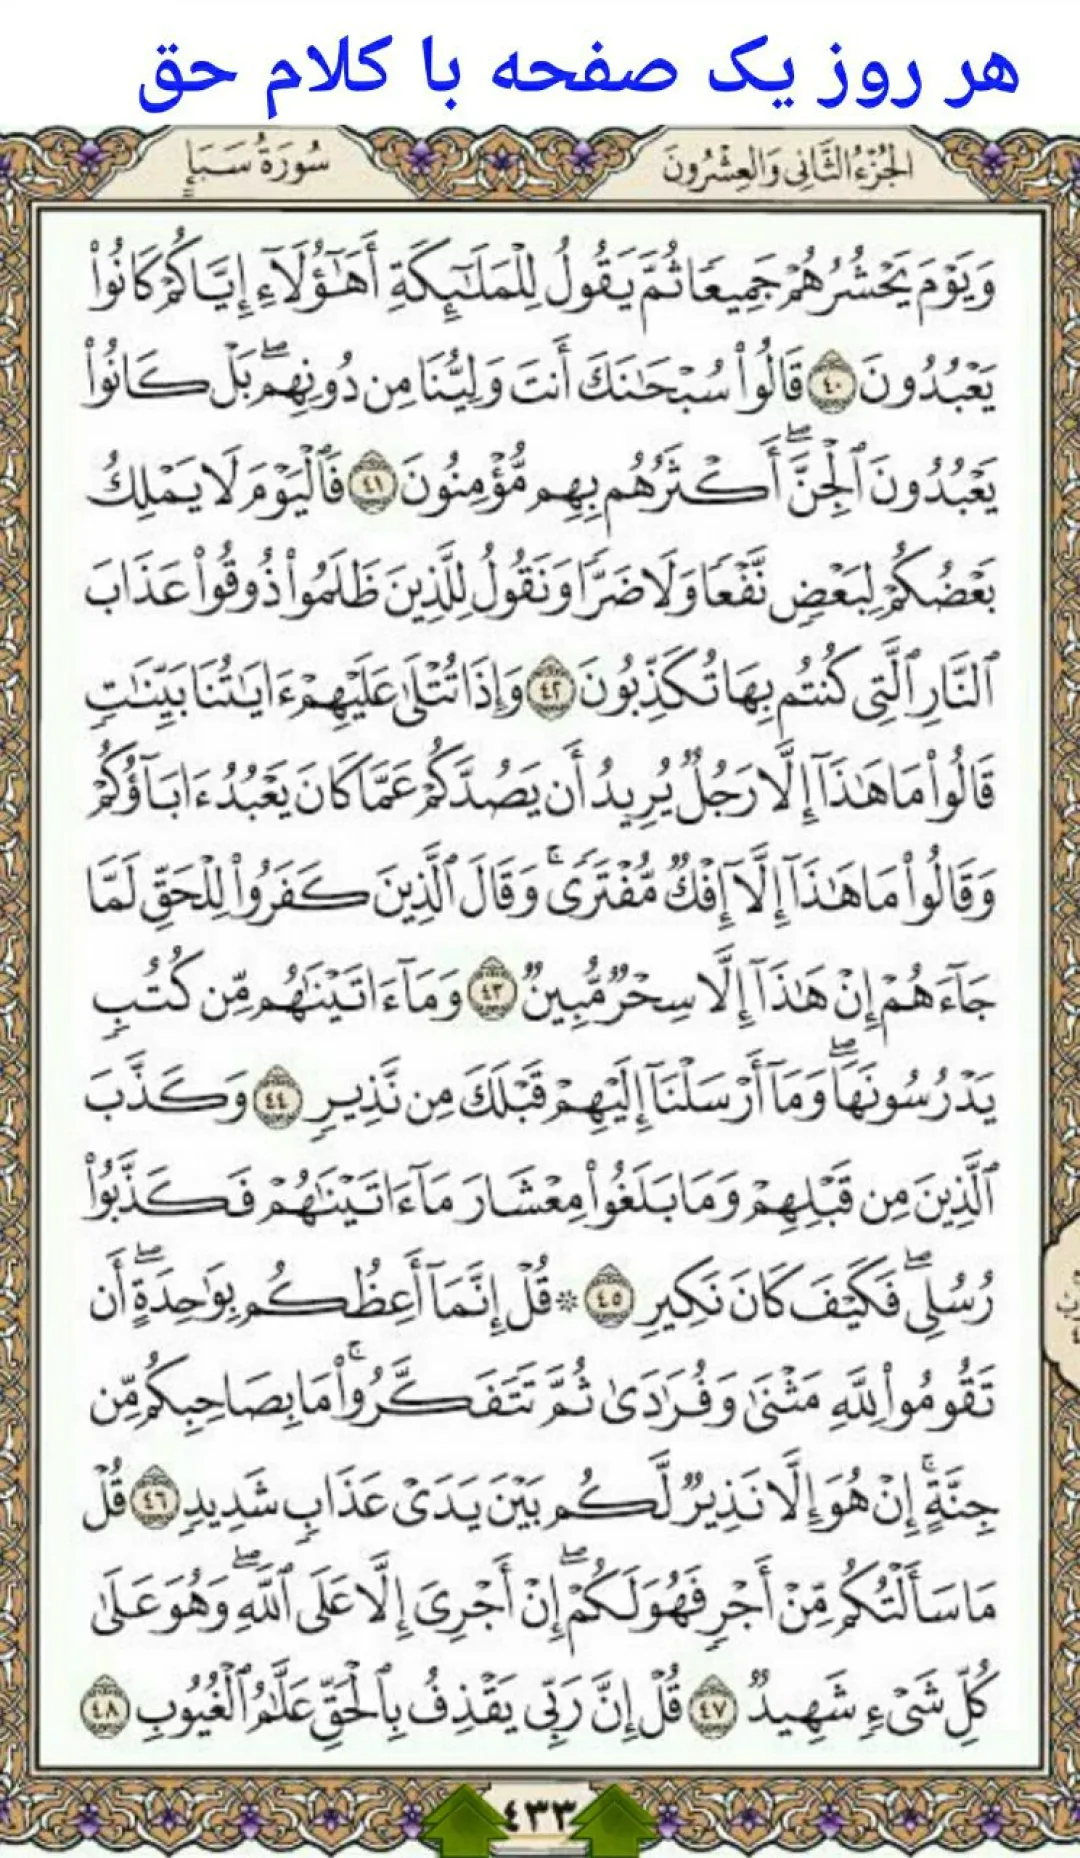 هر روز یک صفحه با کلام حق
الجُزْءُ الثَّانِي وَالعِشْرُونَ
سُورَةُ سَبَإٍ
وَيَوْمَ يَحْشُرُهُمْ جَمِيعًا ثُمَّ يَقُولُ لِلْمَلَٰٓئِكَةِ أَهَٰٓؤُلَآءِ إِيَّاكُمْ كَانُوا۟
يَعْبُدُونَ ٤٠ قَالُوا۟ سُبْحَٰنَكَ أَنتَ وَلِيُّنَا مِن دُونِهِم ۖ بَلْ كَانُوا۟
يَعْبُدُونَ ٱلْجِنَّ ۖ أَكْثَرُهُم بِهِم مُّؤْمِنُونَ ٤١ فَٱلْيَوْمَ لَا يَمْلِكُ
بَعْضُكُمْ لِبَعْضٍ نَّفْعًا وَلَا ضَرًّا وَنَقُولُ لِلَّذِينَ ظَلَمُوا۟ ذُوقُوا۟ عَذَابَ
ٱلنَّارِ ٱلَّتِي كُنتُم بِهَا تُكَذِّبُونَ ٤٢ وَإِذَا تُتْلَىٰ عَلَيْهِمْ ءَايَٰتُنَا بَيِّنَٰتٍ
قَالُوا۟ مَا هَٰذَآ إِلَّا رَجُلٌ يُرِيدُ أَن يَصُدَّكُمْ عَمَّا كَانَ يَعْبُدُ ءَابَآؤُكُمْ
وَقَالُوا۟ مَا هَٰذَآ إِلَّآ إِفْكٌ مُّفْتَرًى ۚ وَقَالَ ٱلَّذِينَ كَفَرُوا۟ لِلْحَقِّ لَمَّا
جَآءَهُمْ إِنْ هَٰذَآ إِلَّا سِحْرٌ مُّبِينٌ ٤٣ وَمَآ ءَاتَيْنَٰهُم مِّن كُتُبٍ
يَدْرُسُونَهَا ۖ وَمَآ أَرْسَلْنَآ إِلَيْهِمْ قَبْلَكَ مِن نَّذِيرٍ ٤٤ وَكَذَّبَ
ٱلَّذِينَ مِن قَبْلِهِمْ وَمَا بَلَغُوا۟ مِعْشَارَ مَآ ءَاتَيْنَٰهُمْ فَكَذَّبُوا۟
رُسُلِي ۖ فَكَيْفَ كَانَ نَكِيرِ ٤٥ ۞ قُلْ إِنَّمَآ أَعِظُكُم بِوَٰحِدَةٍ ۖ أَن
تَقُومُوا۟ لِلَّهِ مَثْنَىٰ وَفُرَٰدَىٰ ثُمَّ تَتَفَكَّرُوا۟ ۚ مَا بِصَاحِبِكُم مِّن
جِنَّةٍ ۚ إِنْ هُوَ إِلَّا نَذِيرٌ لَّكُم بَيْنَ يَدَىْ عَذَابٍ شَدِيدٍ ٤٦ قُلْ
مَا سَأَلْتُكُم مِّنْ أَجْرٍ فَهُوَ لَكُمْ ۖ إِنْ أَجْرِيَ إِلَّا عَلَى ٱللَّهِ ۖ وَهُوَ عَلَىٰ
كُلِّ شَىْءٍ شَهِيدٌ ٤٧ قُلْ إِنَّ رَبِّي يَقْذِفُ بِٱلْحَقِّ عَلَّٰمُ ٱلْغُيُوبِ ٤٨
٤٣٣